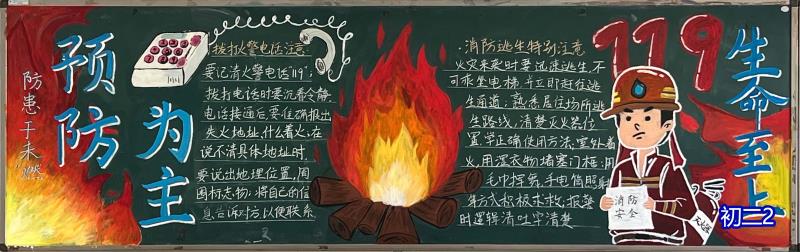 防患于未燃
预防
为主
拨打火警电话注意:
要记清火警电话"119",
拨打电话时要沉着冷静,
电话接通后要准确报出
失火地址,什么着火,在
说不清具体地址时,
要说出地理位置,周
围标志物,将自己的信
息告诉对方以便联系
·消防逃生特别注意
火灾来袭时要迅速逃生,不
可乘坐电梯,并立即赶往逃
生通道;熟悉居住场所逃
生路线,清楚灭火器位
置,学正确使用方法;室外着
火,用湿衣物堵塞门框;用
毛巾挥舞,手电筒照射
等方式积极求救,报警
时逻辑清吐字清楚
119
生命至上
消防
安全
初二2